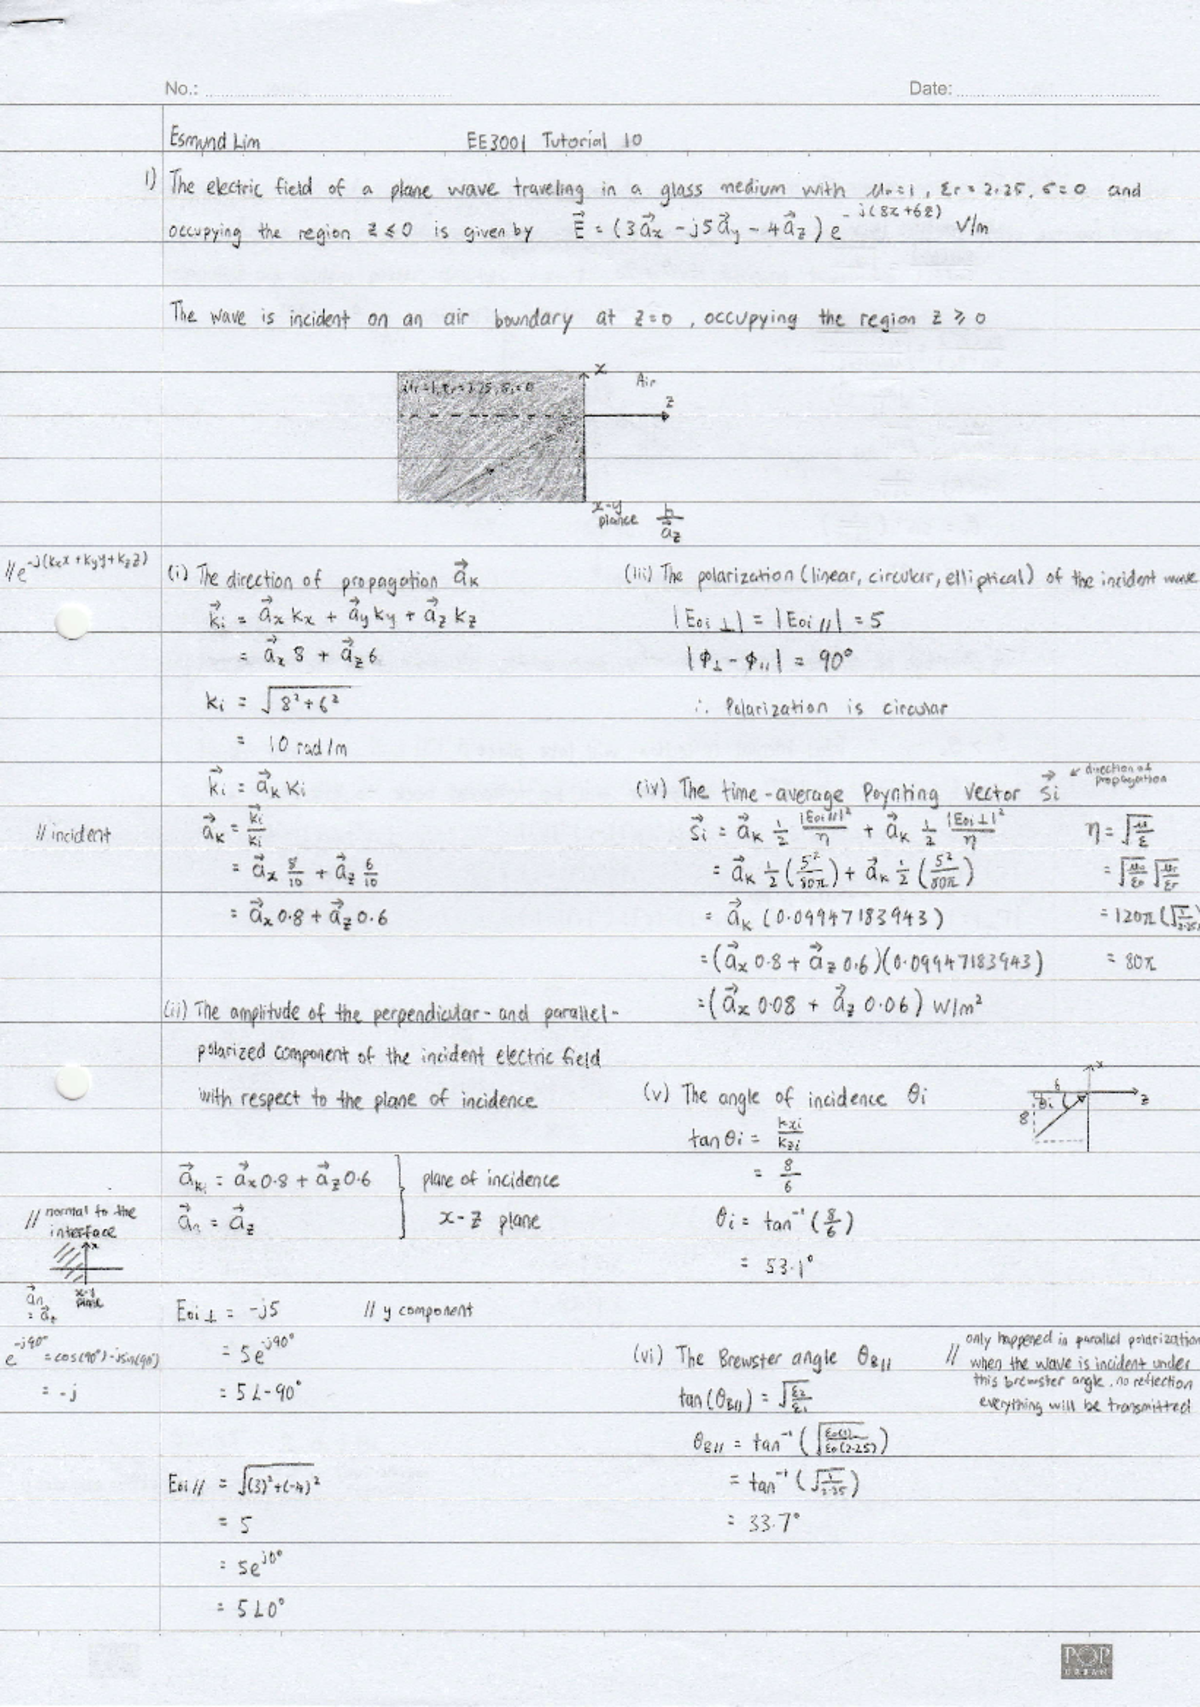 No.:
Date:
Esmund Lim
EE3001 Tutorial 10
1) The electric field of a plane wave traveling in a glass medium with μr=1, εr=2.25, σ=0 and
occupying the region z≤0 is given by E⃗ = (3a⃗x - j5a⃗y - 4a⃗z) e^-j(8x+6z) V/m
The wave is incident on an air boundary at z=0, occupying the region z ≥ 0
μr=1, εr=2.25, σ=0
x
Air
z
x-y
plance
n
a⃗z
// e^-j(kxx+kyy+kzz)
(i) The direction of propagation a⃗k
k⃗i = a⃗x kx + a⃗y ky + a⃗z kz
= a⃗x 8 + a⃗z 6
ki = √(8²+6²)
= 10 rad/m
k⃗i = a⃗k ki
// incident
a⃗k = k⃗i/ki
= a⃗x 8/10 + a⃗z 6/10
= a⃗x 0.8 + a⃗z 0.6
(ii) The amplitude of the perpendicular- and parallel-
polarized component of the incident electric field
with respect to the plane of incidence
a⃗ki = a⃗x 0.8 + a⃗z 0.6
a⃗n = a⃗z
plane of incidence
x-z plane
// normal to the
interface
x
x-y
plane
a⃗n
= a⃗z
Eoi⊥ = -j5 // y component
= 5e^-j90°
= 5∠-90°
e^-j90° = cos(90°)-jsin(90°)
= -j
Eoi// = √((3)²+(-4)²)
= 5
= 5e^j0°
= 5∠0°
(iii) The polarization (linear, circular, elliptical) of the incident wave
|Eoi⊥| = |Eoi//| = 5
|ϕ⊥ - ϕ//| = 90°
∴ Polarization is circular
(iv) The time-average Poynting vector S⃗i
direction of
propagation
S⃗i = a⃗k 1/2 |Eoi//|²/η + a⃗k 1/2 |Eoi⊥|²/η
= a⃗k 1/2 (5²/80π) + a⃗k 1/2 (5²/80π)
= a⃗k (0.09947183943)
= (a⃗x 0.8 + a⃗z 0.6)(0.09947183943)
= (a⃗x 0.08 + a⃗z 0.06) W/m²
η = √(μ/ε)
= √(μo/εo) √(μr/εr)
= 120π (√(1/2.25))
= 80π
(v) The angle of incidence θi
tan θi = kxi/kzi
= 8/6
θi = tan⁻¹ (8/6)
= 53.1°
x
6
z
θi
8
(vi) The Brewster angle θB//
// only happened in parallel polarization
when the wave is incident under
this brewster angle, no reflection
everything will be transmitted
tan(θB//) = √(ε2/ε1)
θB// = tan⁻¹ (√(εo(1)/εo(2.25)))
= tan⁻¹ (√(1/2.25))
= 33.7°
POP
URBAN